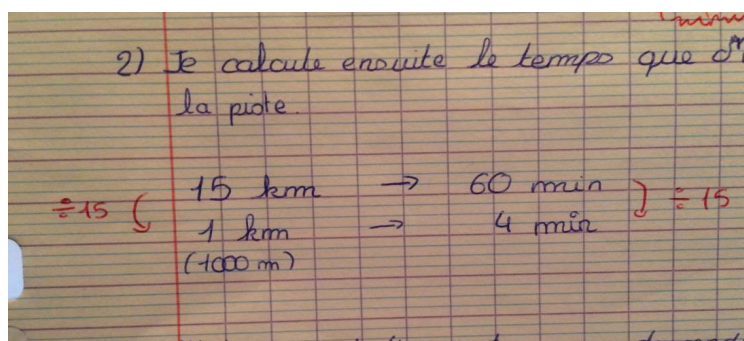 2) Je calcule ensuite le temps que
la piste.
15 km → 60 min
÷15 ÷15
1 km → 4 min
(1000 m)